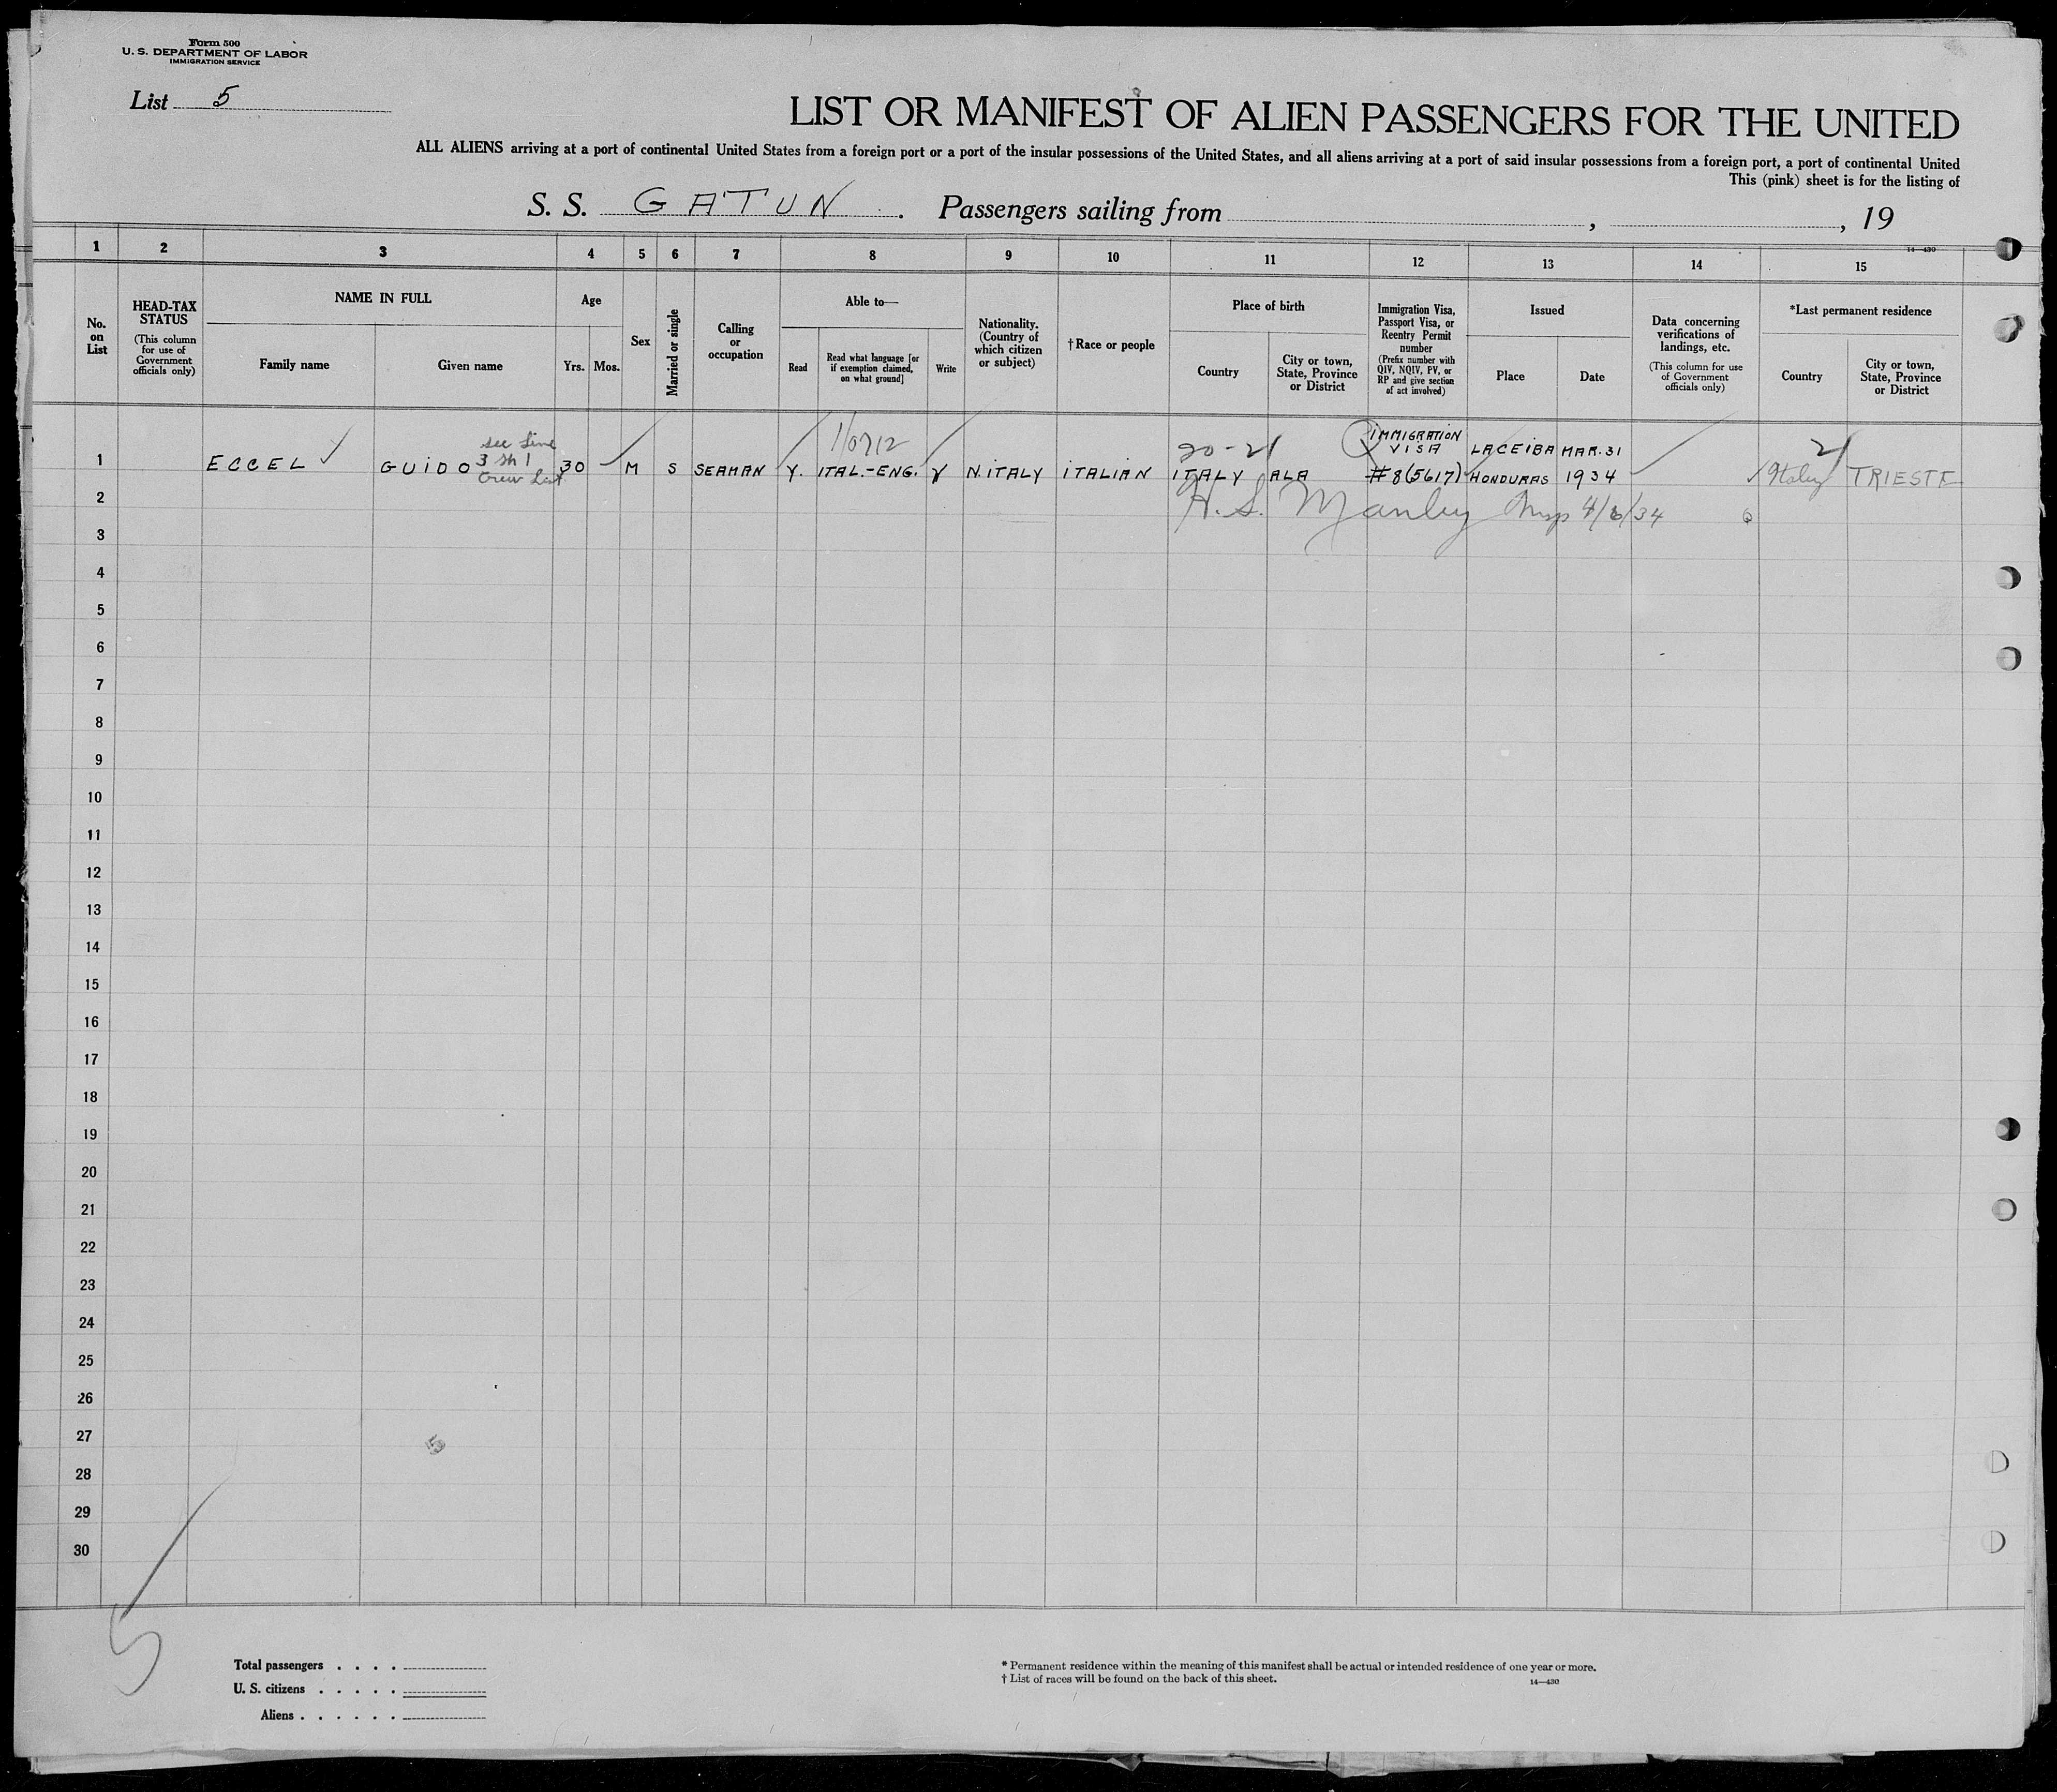 Form 500
U. S. DEPARTMENT OF LABOR
IMMIGRATION SERVICE
List 5
LIST OR MANIFEST OF ALIEN PASSENGERS FOR THE UNITED
ALL ALIENS arriving at a port of continental United States from a foreign port or a port of the insular possessions of the United States, and all aliens arriving at a port of said insular possessions from a foreign port, a port of continental United
This (pink) sheet is for the listing of
S. S. GATUN. Passengers sailing from , , 19
14—430
1 2 3 4 5 6 7 8 9 10 11 12 13 14 15
No.
on
List
HEAD-TAX
STATUS
(This column
for use of
Government
officials only)
NAME IN FULL
Family name
Given name
Age
Yrs.
Mos.
Sex
Married or single
Calling
or
occupation
Able to—
Read
Read what language [or
if exemption claimed,
on what ground]
Write
Nationality.
(Country of
which citizen
or subject)
†Race or people
Place of birth
Country
City or town,
State, Province
or District
Immigration Visa,
Passport Visa, or
Reentry Permit
number
(Prefix number with
QIV, NQIV, PV, or
RP and give section
of act involved)
Issued
Place
Date
Data concerning
verifications of
landings, etc.
(This column for use
of Government
officials only)
*Last permanent residence
Country
City or town,
State, Province
or District
see line
3 sh 1
Crew List
20-21
IMMIGRATION
VISA
LACEIBA MAR.31
21
1 ECCEL GUIDO 30 M S SEAMAN Y. ITAL.-ENG. Y N.ITALY ITALIAN ITALY ALA #8(5617) HONDURAS 1934 Italy TRIESTE
2
H. S. Manley Insp 4/6/34
3
4
5
6
7
8
9
10
11
12
13
14
15
16
17
18
19
20
21
22
23
24
25
26
27
5
28
29
30
5
Total passengers . . . .
U. S. citizens . . . . .
Aliens . . . . . .
* Permanent residence within the meaning of this manifest shall be actual or intended residence of one year or more.
† List of races will be found on the back of this sheet.
14—430